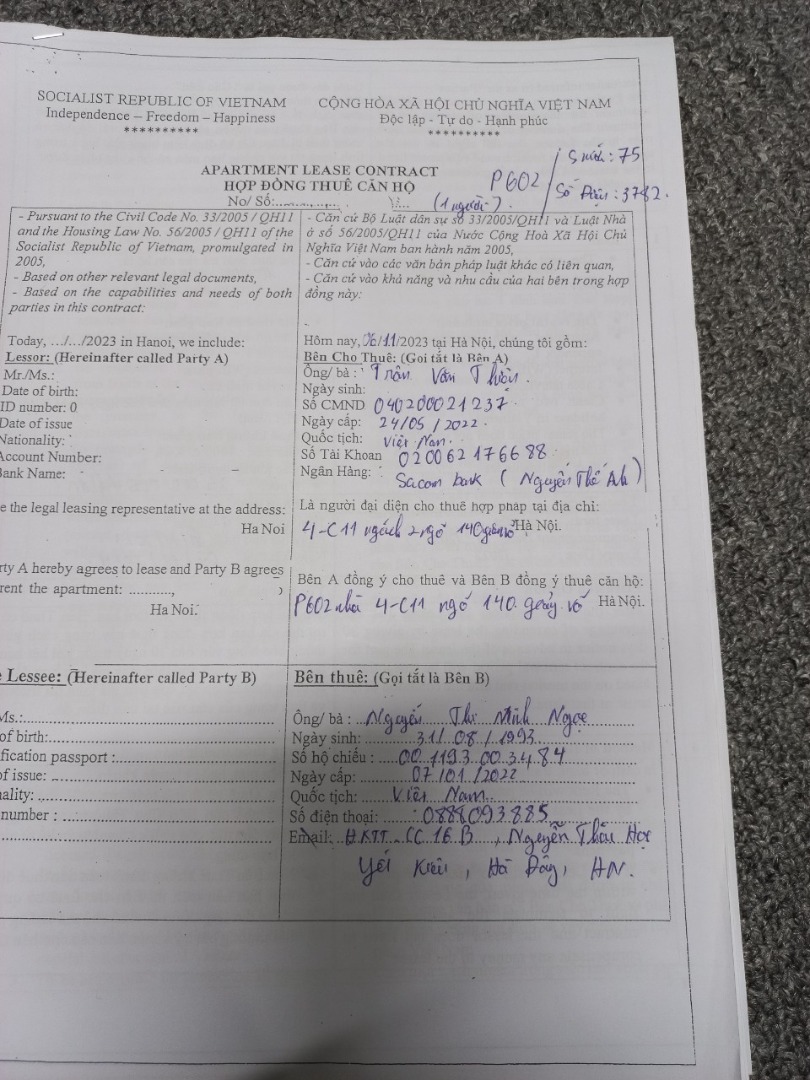 SOCIALIST REPUBLIC OF VIETNAM
Independence – Freedom – Happiness
**********
CỘNG HÒA XÃ HỘI CHỦ NGHĨA VIỆT NAM
Độc lập - Tự do - Hạnh phúc
**********
APARTMENT LEASE CONTRACT
HỢP ĐỒNG THUÊ CĂN HỘ
No/ Số:
(1 người).
P602
Số nước: 75
Số điện: 3782.
- Pursuant to the Civil Code No. 33/2005 / QH11
and the Housing Law No. 56/2005 / QH11 of the
Socialist Republic of Vietnam, promulgated in
2005,
- Based on other relevant legal documents,
- Based on the capabilities and needs of both
parties in this contract:
- Căn cứ Bộ Luật dân sự số 33/2005/QH11 và Luật Nhà
ở số 56/2005/QH11 của Nước Cộng Hoà Xã Hội Chủ
Nghĩa Việt Nam ban hành năm 2005,
- Căn cứ vào các văn bản pháp luật khác có liên quan,
- Căn cứ vào khả năng và nhu cầu của hai bên trong hợp
đồng này:
Today, .../.../2023 in Hanoi, we include:
Lessor: (Hereinafter called Party A)
Mr./Ms.:
Date of birth:
ID number: 0
Date of issue
Nationality:
Account Number:
Bank Name:
e the legal leasing representative at the address:
Ha Noi
rty A hereby agrees to lease and Party B agrees
rent the apartment: ..........,
Ha Noi.
Hôm nay, 06/11/2023 tại Hà Nội, chúng tôi gồm:
Bên Cho Thuê: (Gọi tắt là Bên A)
Ông/ bà : Trần Văn
Ngày sinh:
Số CMND 040200021237
Ngày cấp: 24/05/2022.
Quốc tịch: Việt Nam.
Số Tài Khoan 020062176688
Ngân Hàng: Sacom bank (Nguyễn Thế Anh)
Là người đại diện cho thuê hợp pháp tại địa chỉ:
4-C11 ngách 2 ngõ 140 Hà Nội.
Bên A đồng ý cho thuê và Bên B đồng ý thuê căn hộ:
P602 nhà 4-C11 ngõ 140 giảng võ Hà Nội.
e Lessee: (Hereinafter called Party B)
Ms.:
of birth:
fication passport :
of issue:
nality:
number :
Bên thuê: (Gọi tắt là Bên B)
Ông/ bà : Nguyễn Thị Minh Ngọc
Ngày sinh: 31/08/1993
Số hộ chiếu : 001193003484
Ngày cấp: 07/01/2022
Quốc tịch: Việt Nam
Số điện thoại: 0888093885
Email: HKTT CC 16B, Nguyễn Thái Học
Yết Kiêu, Hà Đông, HN.